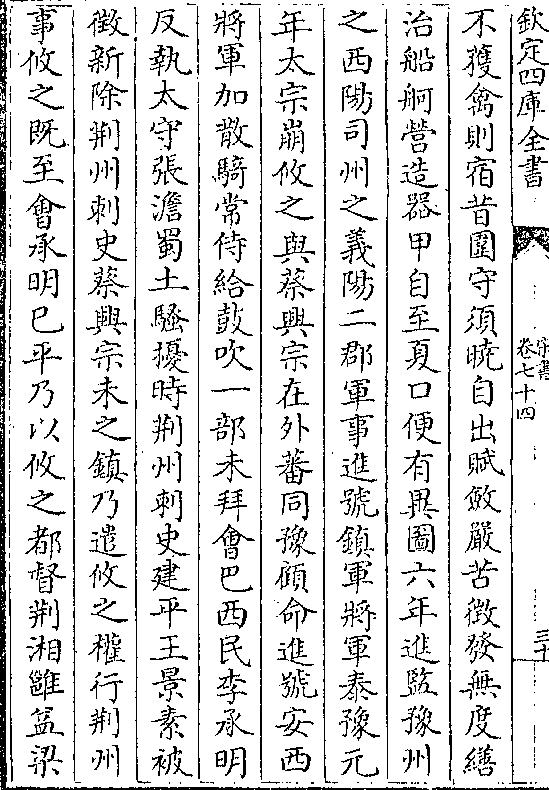 欽定四庫全書
宋書
卷七十四
三十
不獲禽則宿昔圍守須曉自出賦斂嚴苦徴發無度繕
治船舸營造器甲自至夏口便有異圖六年進監豫州
之西陽司州之義陽二郡軍事進號鎮軍將軍泰豫元
年太宗崩攸之與蔡興宗在外蕃同豫顧命進號安西
將軍加散騎常侍給鼓吹一部未拜會巴西民李承明
反執太守張澹蜀土騷擾時荆州刺史建平王景素被
徴新除荆州刺史蔡興宗未之鎮乃遣攸之權行荆州
事攸之既至會承明已平乃以攸之都督荆湘雝益梁